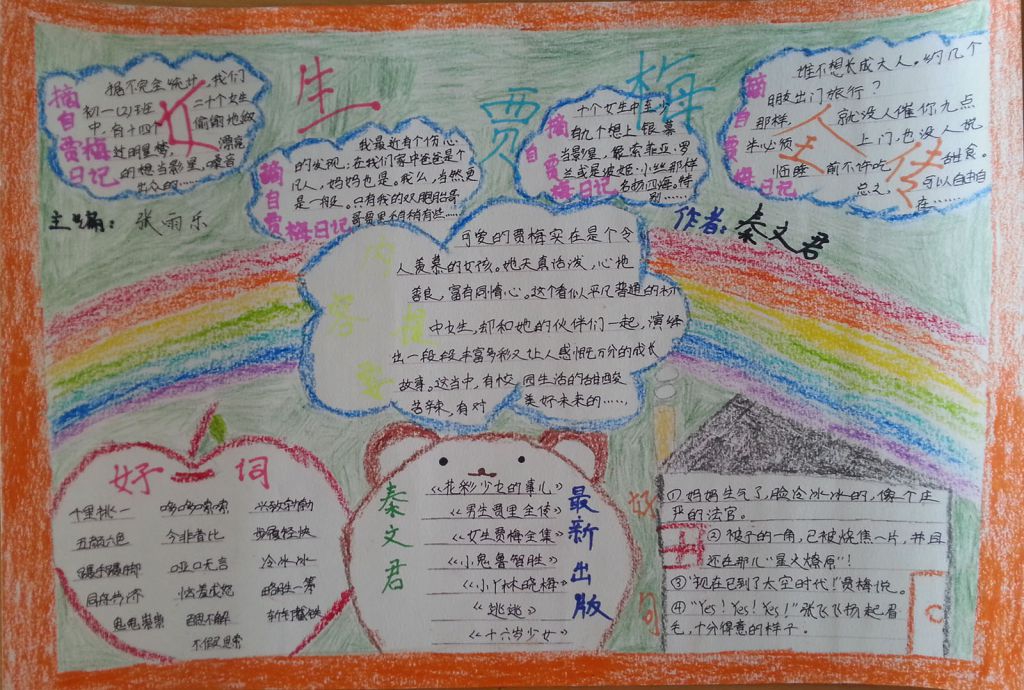 女生贾梅全传
摘自贾梅日记
据不完全统计，我们
初一(2)班 二十个女生
中，有十四个 偷偷地做
过明星梦。 漂亮
的想当影星，嗓音
出众的……
摘自贾梅日记
我最近有个伤心
的发现：在我们家中爸爸是个
凡人，妈妈也是。我么，当然更
是一般。只有我的双胞胎哥
哥贾里稍稍有些……
摘自贾梅日记
十个女生中至少
有九个想上银幕
当影星，最索菲亚·罗
兰或是波姬·小丝那样
名扬四海。特
别……
摘自贾梅日记
谁不想长成大人。约几个
朋友出门旅行？
那样， 就没人催你九点
半必须 上门，也没人说
临睡 前不许吃 甜食。
总之， 可以自由自
在……
主编：张雨乐
作者：秦文君
内容提要
可爱的贾梅实在是个令
人羡慕的女孩。她天真活泼，心地
善良，富有同情心。这个看似平凡普通的初
中女生，却和她的伙伴们一起，演绎
出一段段丰富多彩又让人感慨万分的成长
故事。这当中，有校园生活的甜酸
苦辣，有对 美好未来的……
好词
千里挑一 哆哆嗦嗦 兴致勃勃
五颜六色 今非昔比 步履轻快
蹑手蹑脚 哑口无言 冷冰冰
同舟共济 恼羞成怒 略胜一筹
鬼鬼祟祟 迷惑不解 斩钉截铁
不假思索
秦文君
最新出版
《花彩少女的事儿》
《男生贾里全传》
《女生贾梅全集》
《小鬼鲁智胜》
《小丫林晓梅》
《逃逃》
《十六岁少女》
好句
①妈妈生气了，脸冷冰冰的，像一个庄
严的法官。
②被子的一角，已被烧焦一片，并且
还在那儿“星火燎原”！
③“现在已到了太空时代！贾梅说。
④“Yes！Yes！Yes！”张飞飞扬起眉
毛，十分得意的样子。